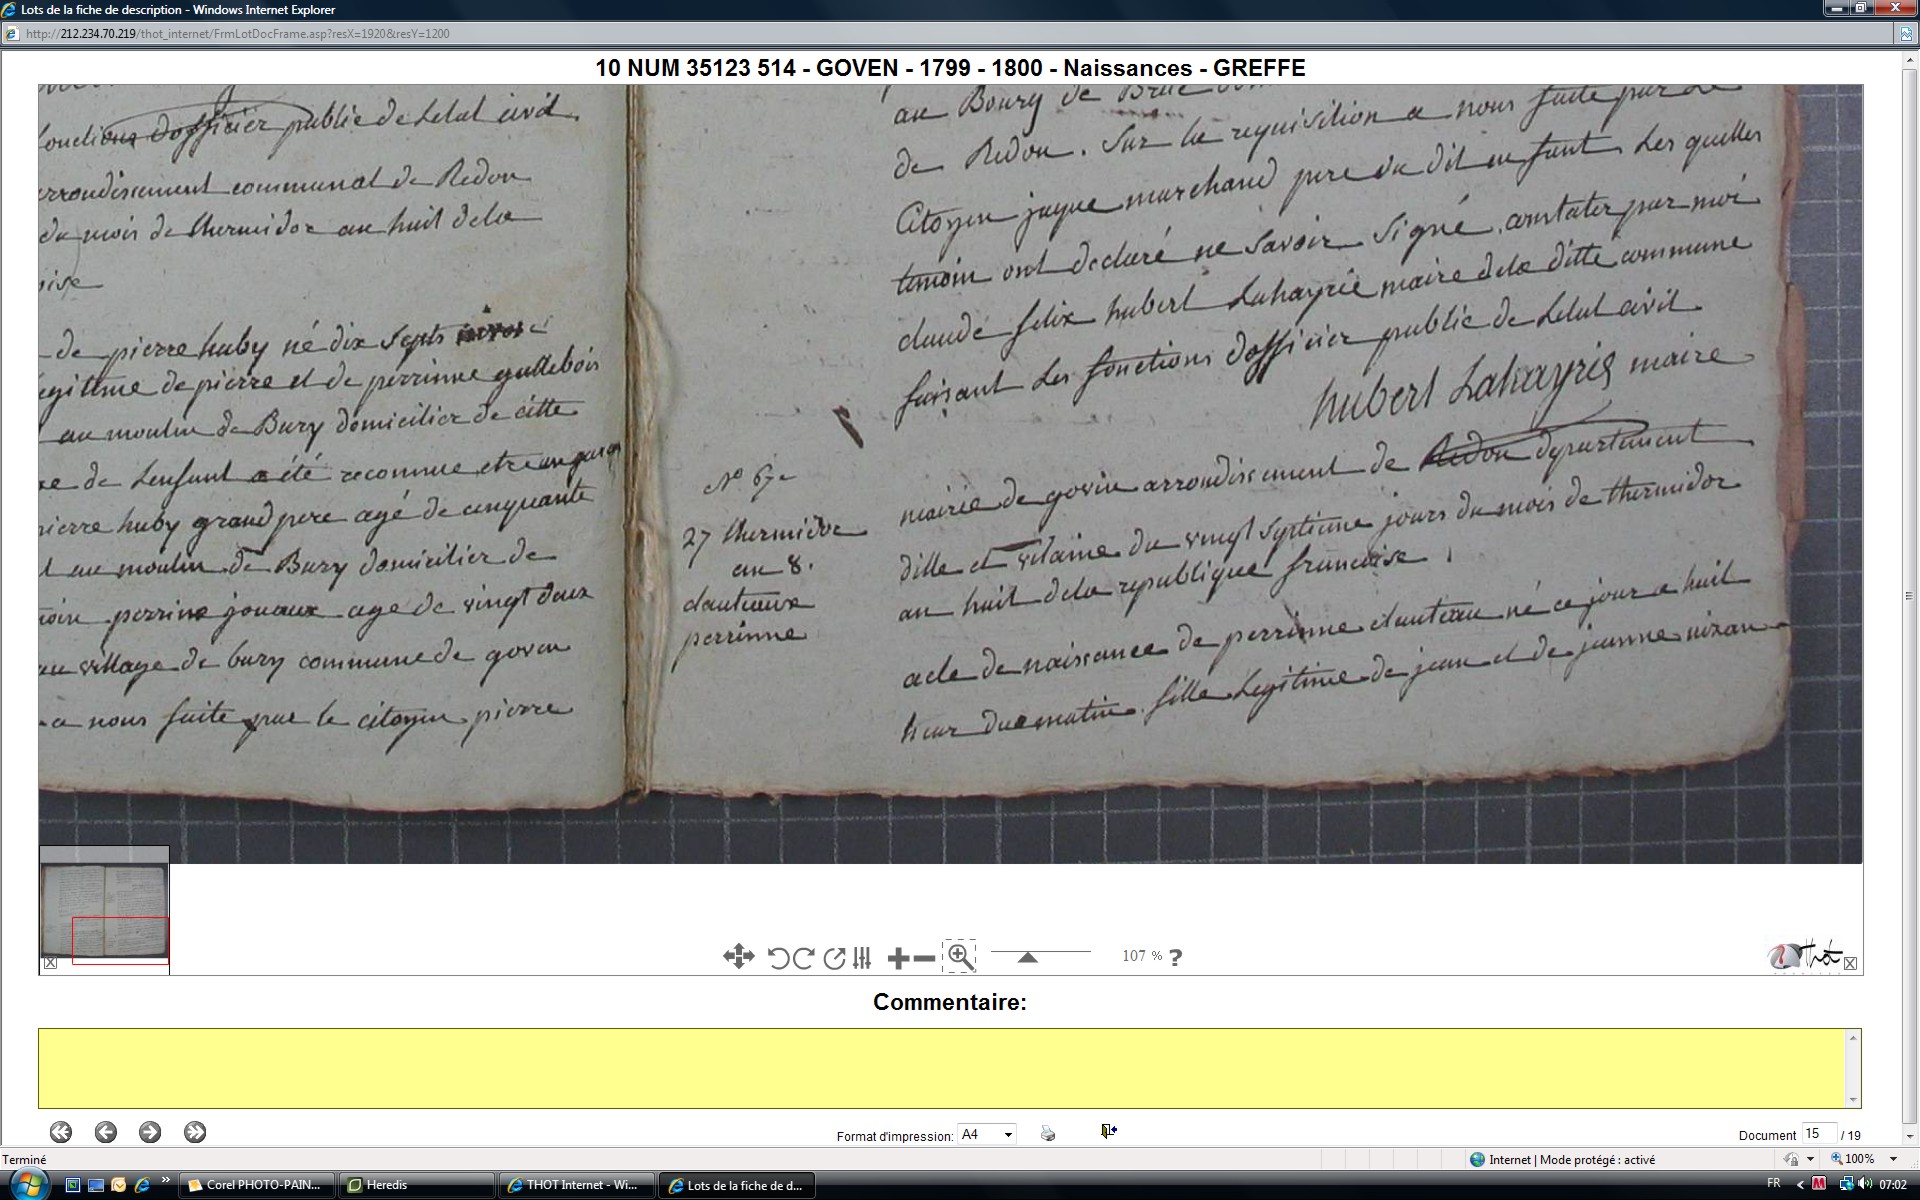 Lots de la fiche de description - Windows Internet Explorer
http://212.234.70.219/thot_internet/FrmLotDocFrame.asp?resX=1920&resY=1200
10 NUM 35123 514 - GOVEN - 1799 - 1800 - Naissances - GREFFE
fonctions dofficier public de Letat civil
arrondissement communal de Redon
du mois de thermidor an huit de la
de pierre huby né dix septs
legitime de pierre et de perrinne
au moulin de Bury domicilier de citte
de Lenfant a été reconnue etre un garcon
pierre huby grand pere agé de cinquante
au moulin de Bury domicilier de
perrine jouaux age de vingt deux
au village de bury commune de goven
a nous faite par le citoyen pierre
au Bourg de Bruc
de Redon. Sur la requisition a nous faite par le
Citoyen jaque marchand pere du dit enfant Les quelles
temoin ont declaré ne Savoir Signé, constater par moi
claude felix hubert Lahayrie maire dela ditte commune
faisant Les fonctions dofficier public de Letat civil
hubert Lahayrie maire
No 67e
27 thermidor
an 8.
dauteaux
perrinne
mairie de goven arrondissement de Redon departement
dille et vilaine du vingt Septieme jours du mois de thermidor
an huit dela republique francoise.
acte de naissance de perrinne dauteau né ce jour a huit
heur du matin. fille Legitime de jean et de jeanne
107 % ?
Thot
Commentaire:
Format d'impression: A4
Document 15 / 19
Terminé
Internet | Mode protégé : activé
100%
Corel PHOTO-PAIN...
Heredis
THOT Internet - Wi...
Lots de la fiche de d...
FR
07:02